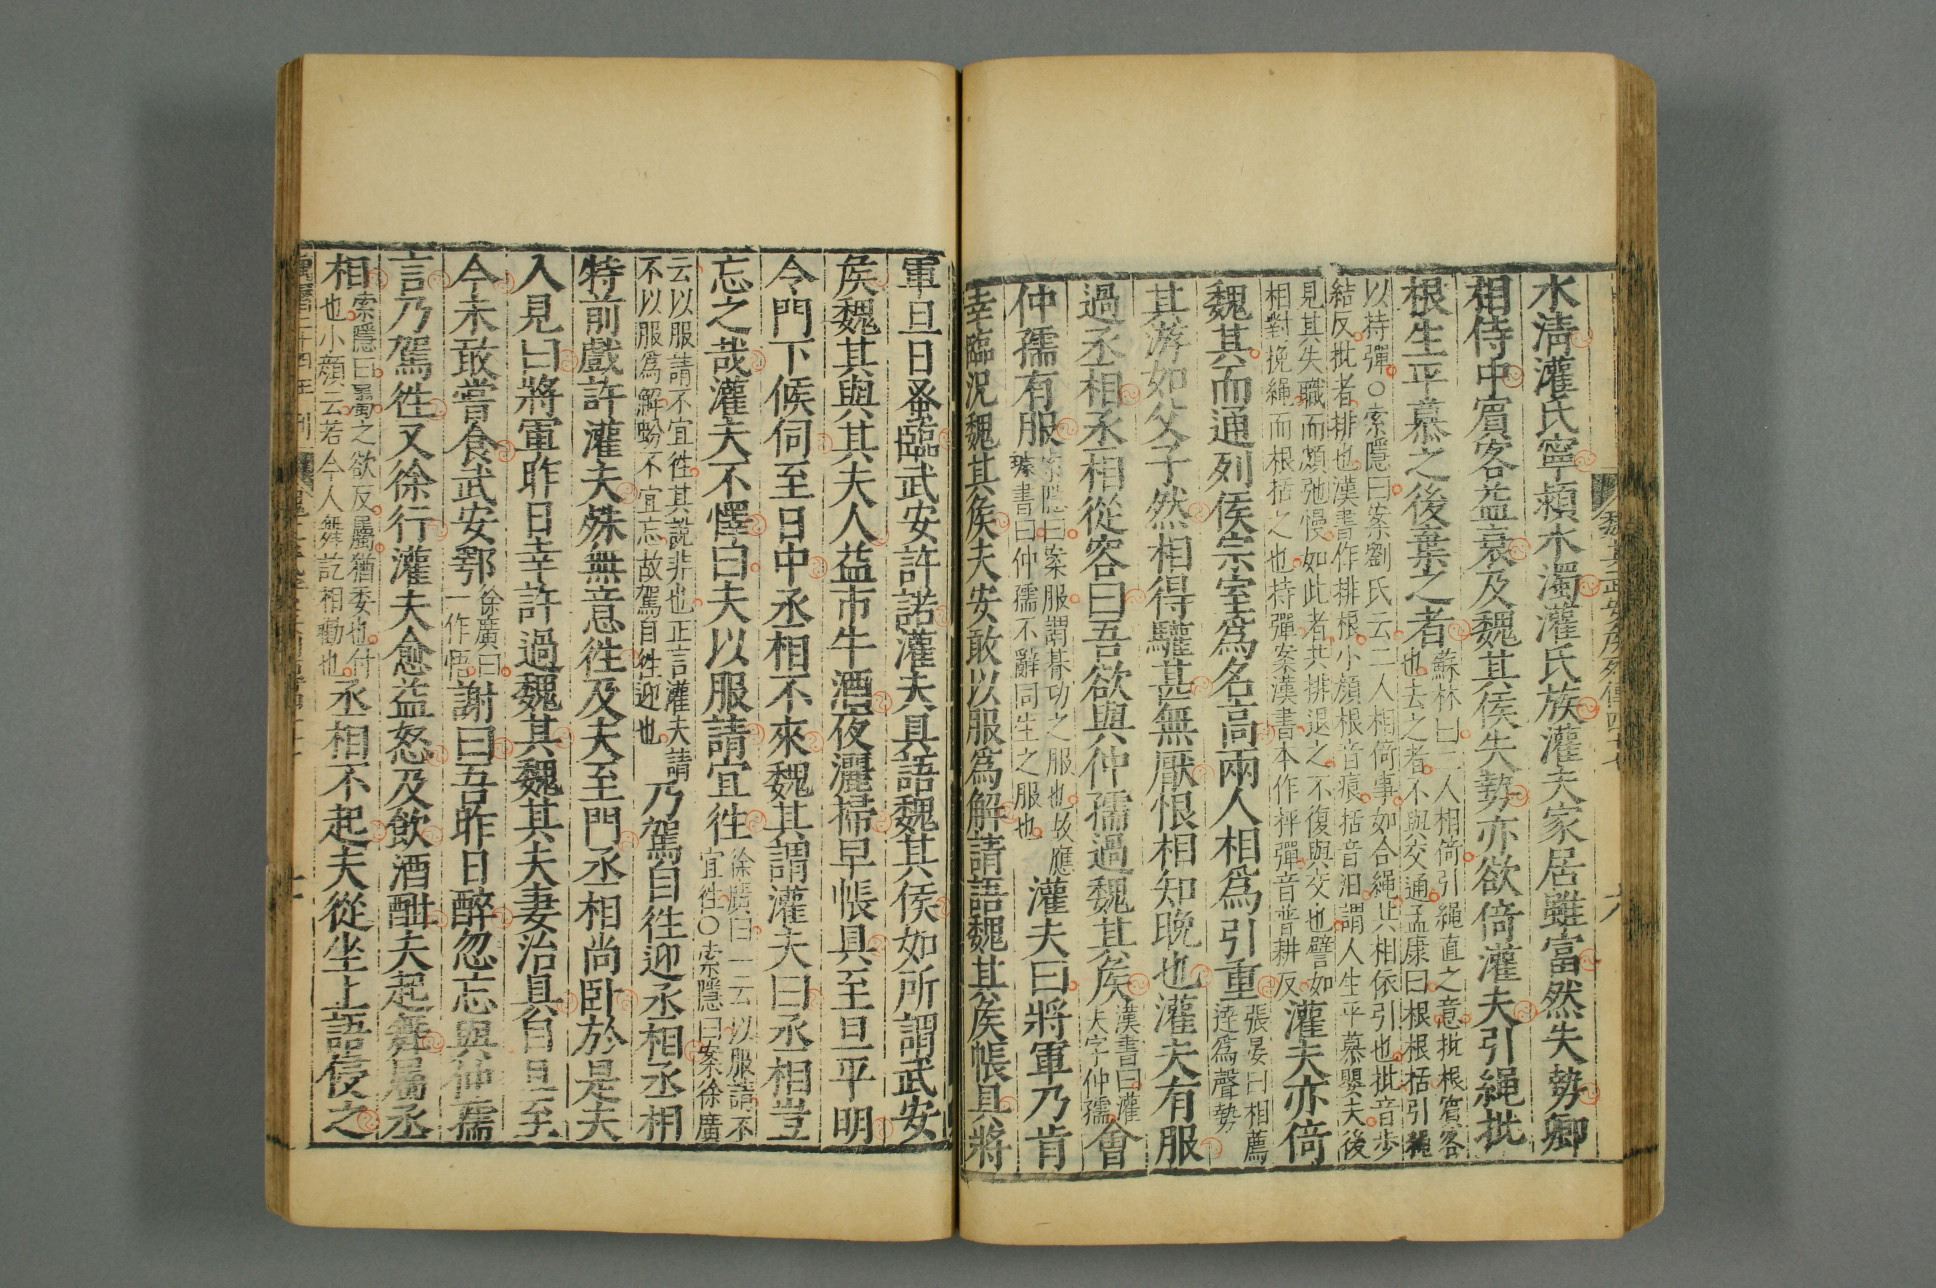 水清灌氏寧潁水濁灌氏族灌夫家居雖富然失勢卿
相侍中賔客益衰及魏其侯失勢亦欲倚灌夫引繩批
根生平慕之後棄之者蘇林曰二人相倚引繩直之意批根賔客
也去之者不與交通孟康曰根根括引繩
以持彈○索隱曰案劉氏云二人相倚事如合繩共相依引也批音步
結反批者排也漢書作排根小顔根音痕括音汨謂人生平慕嬰夫後
見其失職而頗弛慢如此者共排退之不復與交也譬如
相對挽繩而根括之也持彈案漢書本作抨彈音普耕反灌夫亦倚
魏其而通列侯宗室爲名高兩人相爲引重張晏曰相薦
逹爲聲勢
其游如父子然相得驩甚無厭恨相知晚也灌夫有服
過丞相丞相從容曰吾欲與仲孺過魏其侯漢書曰灌
夫字仲孺會
仲孺有服索隱曰案服謂朞功之服也故應
璩書曰仲孺不辭同生之服也灌夫曰將軍乃肯
幸臨況魏其侯夫安敢以服爲解請語魏其侯帳具將
軍旦日蚤臨武安許諾灌夫具語魏其侯如所謂武安
侯魏其與其夫人益市牛酒夜灑掃早帳具至旦平明
令門下候伺至日中丞相不來魏其謂灌夫曰丞相豈
忘之哉灌夫不懌曰夫以服請宜徃徐廣曰一云以服請不
宜徃○索隱曰案徐廣
云以服請不宜徃其說非也正言灌夫請
不以服爲解蚡不宜忘故駕自徃迎也乃駕自徃迎丞相丞相
特前戲許灌夫殊無意徃及夫至門丞相尚卧於是夫
入見曰將軍昨日幸許過魏其魏其夫妻治具自旦至
今未敢嘗食武安鄂徐廣曰
一作悟謝曰吾昨日醉忽忘與仲孺
言乃駕徃又徐行灌夫愈益怒及飲酒酣夫起舞屬丞
相索隱曰屬之欲反屬猶委也付
也小顔云若今人舞訖相勸也丞相不起夫從坐上語侵之